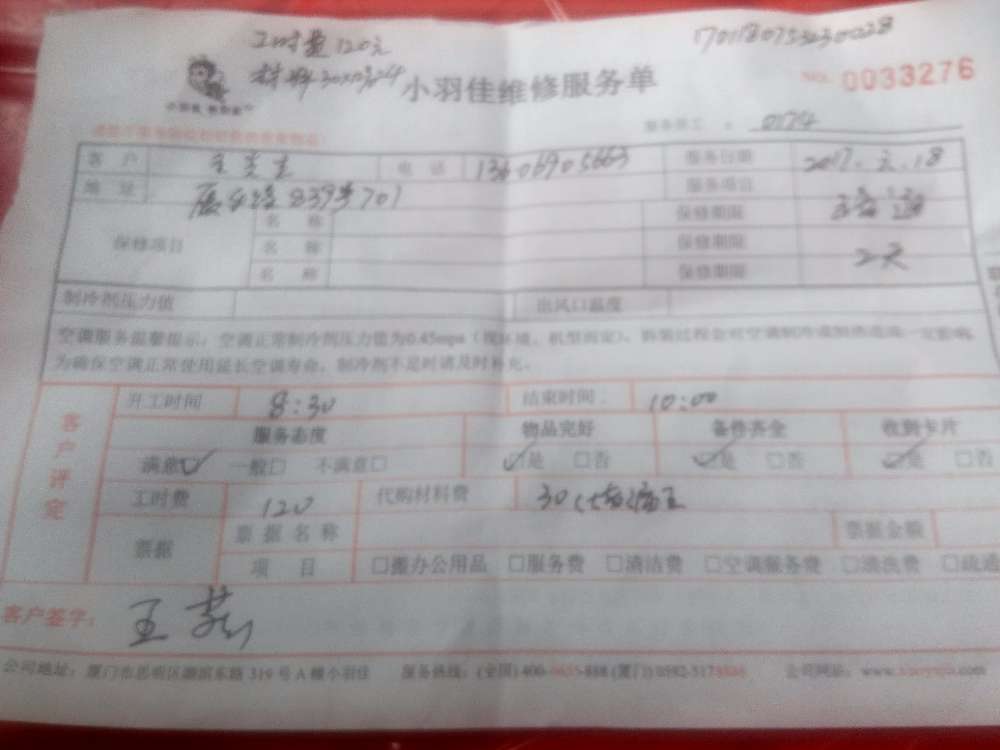 工时费120元
170118075230028
材料30
小羽佳维修服务单
NO. 0033276
0174
客 户 电 话 13606905663 服务日期 2017.2.18
地 址 839号701 服务项目
名 称 保修期限
保修项目 名 称 保修期限 2天
名 称 保修期限
制冷剂压力值 出风口温度
空调服务温馨提示：空调正常制冷剂压力值为0.45mpa（视环境、机型而定）。
为确保空调正常使用延长空调寿命，制冷剂不足时请及时补充。
客户评定
开工时间 8:30 结束时间： 10:00
服务态度 物品完好 备件齐全 收到卡片
满意☑ 一般□ 不满意□ ☑是 □否 ☑是 □否 ☑是 □否
工时费 120 代购材料费 30
票据 票据名称 票据金额
项 目 □搬办公用品 □服务费 □清洁费 □空调服务费 □清洗费 □疏通
客户签字： 王燕
公司地址：厦门市思明区湖滨东路 319 号 A 幢小羽佳 服务热线：(全国) 400- -888 (厦门) 0592-517 公司网站：www. .com